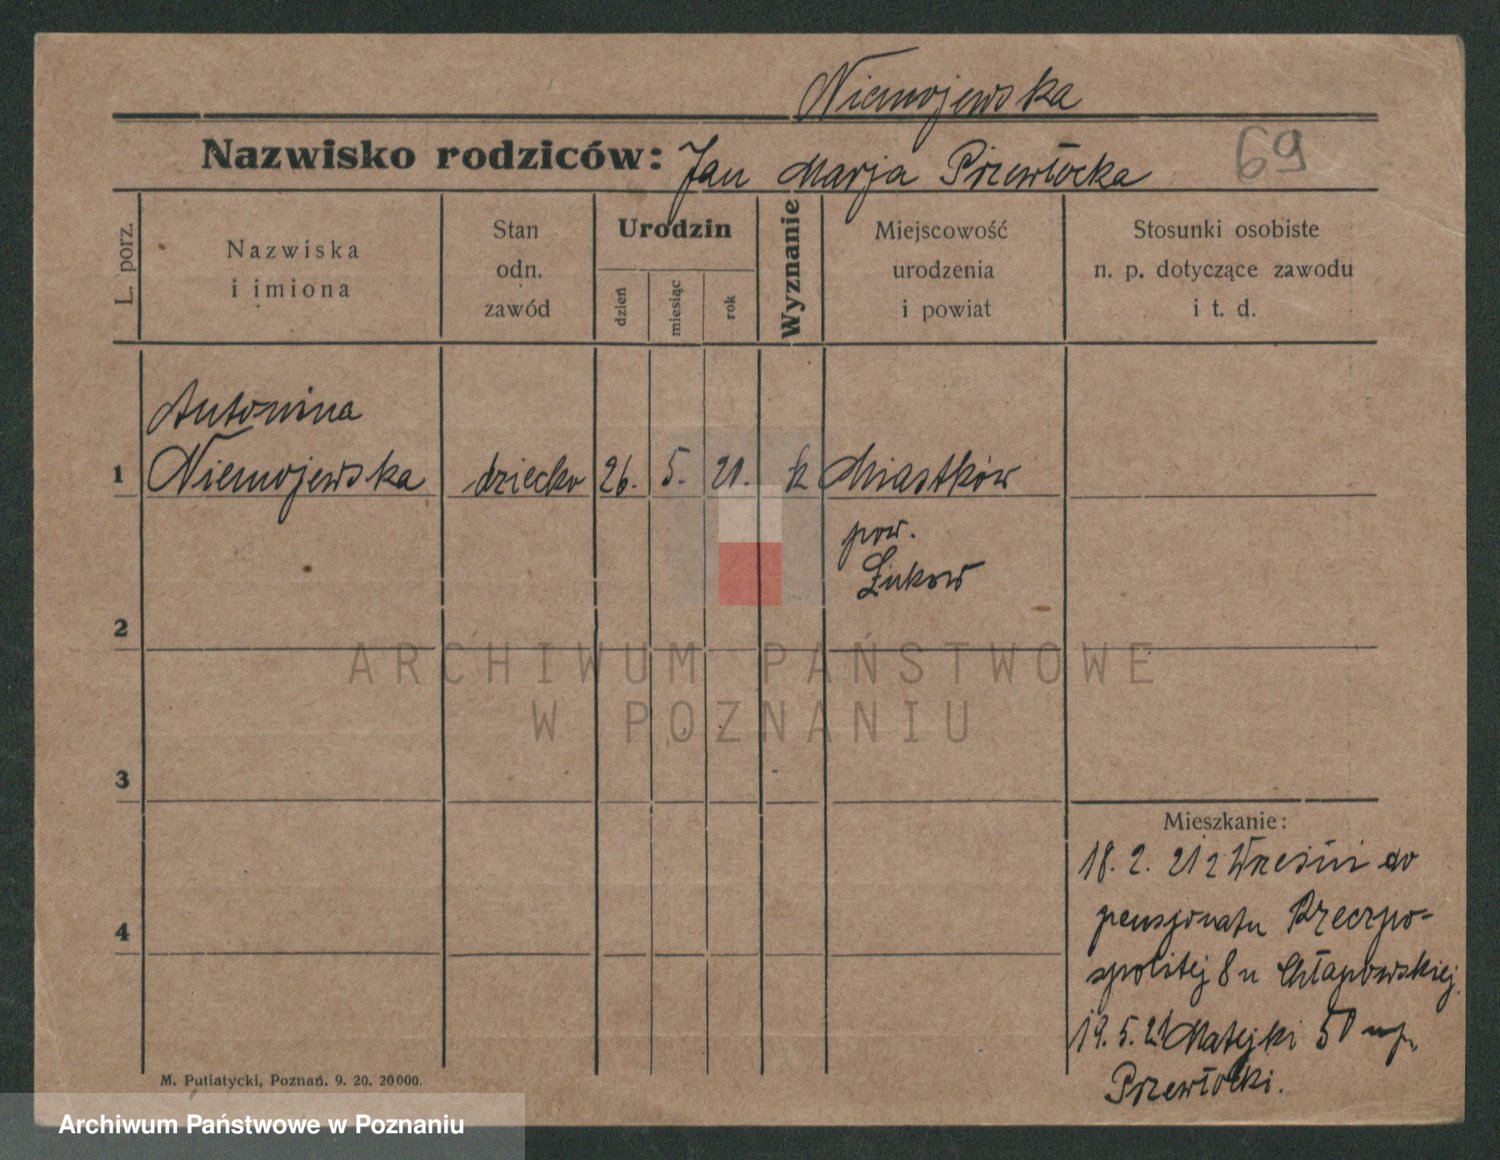 Niemojewska
Nazwisko rodziców: Jan Marja Przewłocka
69
L. porz.
Nazwiska
i imiona
Stan
odn.
zawód
Urodzin
dzień
miesiąc
rok
Wyznanie
Miejscowość
urodzenia
i powiat
Stosunki osobiste
n. p. dotyczące zawodu
i t. d.
Antonina
1 Niemojewska dziecko 26. 5. 20. k Miastków
pow.
Łuków
2
ARCHIWUM PAŃSTWOWE
W POZNANIU
3
Mieszkanie:
18. 2. 21 z Wrześni do
pensjonatu Rzeczpo-
4
spolitej 8 u Chłapowskiej.
19. 5. 21 Matejki 50
Przewłocki.
M. Putiatycki, Poznań. 9. 20. 20000.
Archiwum Państwowe w Poznaniu